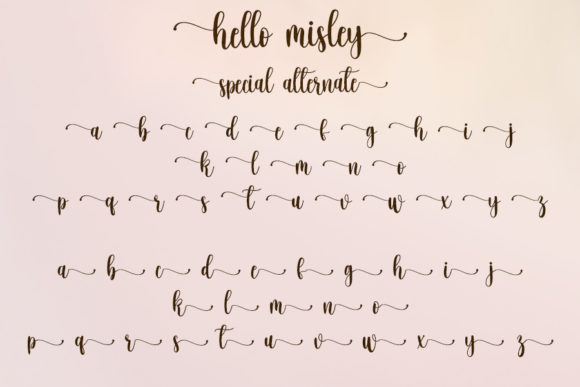 hello misley
special alternate
a b c d e f g h i j
k l m n o
p q r s t u v w x y z
a b c d e f g h i j
k l m n o
p q r s t u v w x y z